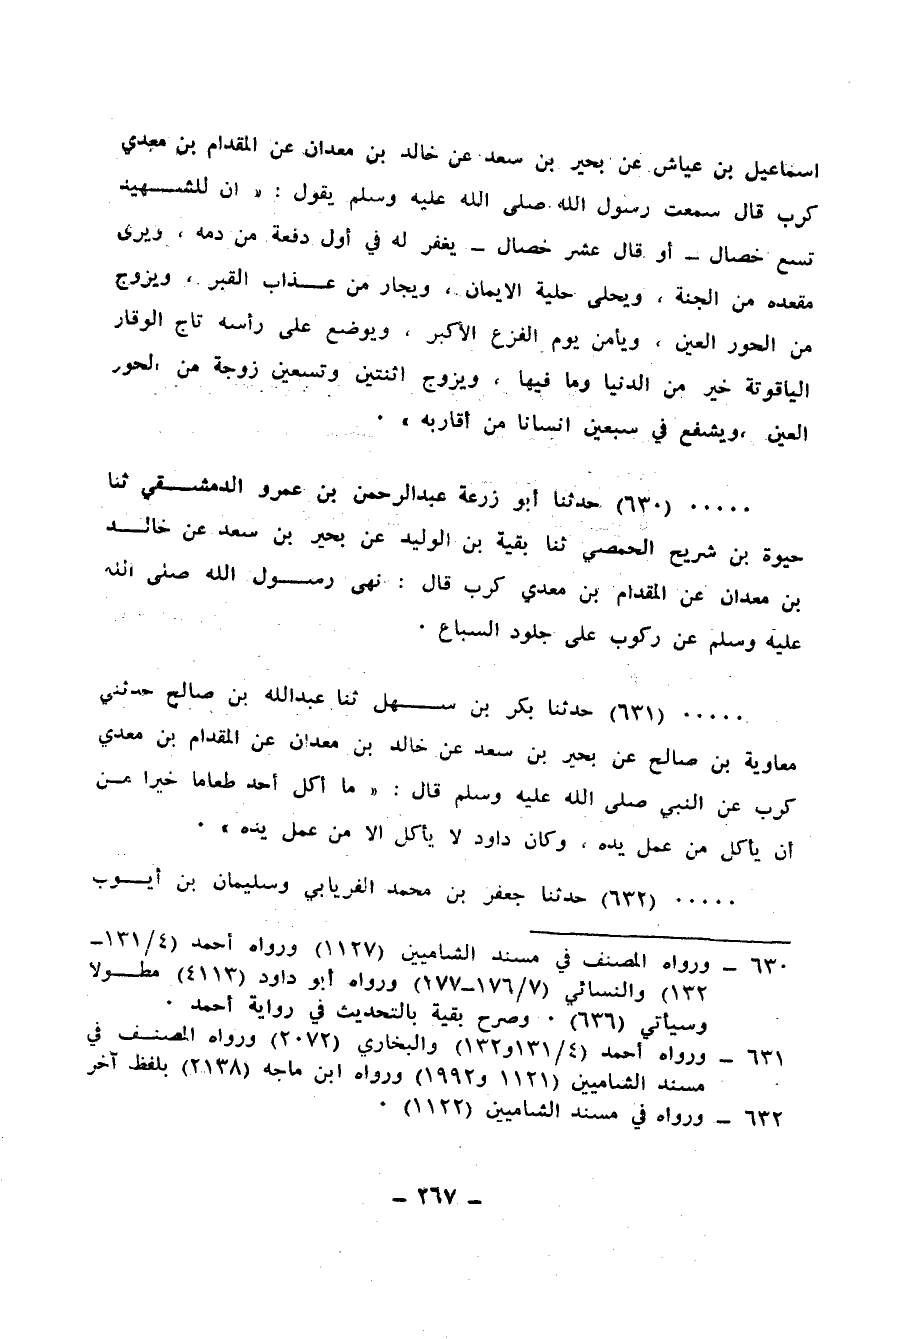 اسماعيل بن عياش عن بحير بن سعد عن خالد بن معدان عن المقدام بن معدي
كرب قال سمعت رسول الله صلى الله عليه وسلم يقول : « ان للشهيد
تسع خصال ــ أو قال عشر خصال ــ يغفر له في أول دفعة من دمه ، ويرى
مقعده من الجنة ، ويحلى حلية الايمان ، ويجار من عذاب القبر ، ويزوج
من الحور العين ، ويأمن يوم الفزع الأكبر ، ويوضع على رأسه تاج الوقار
الياقوتة خير من الدنيا وما فيها ، ويزوج اثنتين وتسعين زوجة من الحور
العين ،ويشفع في سبعين انسانا من أقاربه » ٠
٠٠٠٠٠ (٦٣٠) حدثنا أبو زرعة عبدالرحمن بن عمرو الدمشقي ثنا
حيوة بن شريح الحمصي ثنا بقية بن الوليد عن بحير بن سعد عن خالد
بن معدان عن المقدام بن معدي كرب قال : نهى رسول الله صلى الله
عليه وسلم عن ركوب على جلود السباع ٠
٠٠٠٠٠ (٦٣١) حدثنا بكر بن سهل ثنا عبدالله بن صالح حدثني
معاوية بن صالح عن بحير بن سعد عن خالد بن معدان عن المقدام بن معدي
كرب عن النبي صلى الله عليه وسلم قال : « ما أكل أحد طعاما خيرا من
أن يأكل من عمل يده ، وكان داود لا يأكل الا من عمل يده » ٠
٠٠٠٠٠ (٦٣٢) حدثنا جعفر بن محمد الفريابي وسليمان بن أيوب
٦٣٠ ــ ورواه المصنف في مسند الشاميين (١١٢٧) ورواه أحمد (١٣١/٤ــ
١٣٢) والنسائي (١٧٦/٧ــ١٧٧) ورواه أبو داود (٤١١٣) مطولا
وسيأتي (٦٣٦) ٠ وصرح بقية بالتحديث في رواية أحمد ٠
٦٣١ ــ ورواه أحمد (١٣١/٤و١٣٢) والبخاري (٢٠٧٢) ورواه المصنف في
مسند الشاميين (١١٢١ و١٩٩٢) ورواه ابن ماجه (٢١٣٨) بلفظ آخر
٦٣٢ ــ ورواه في مسند الشاميين (١١٢٢) ٠
ــ ٢٦٧ ــ